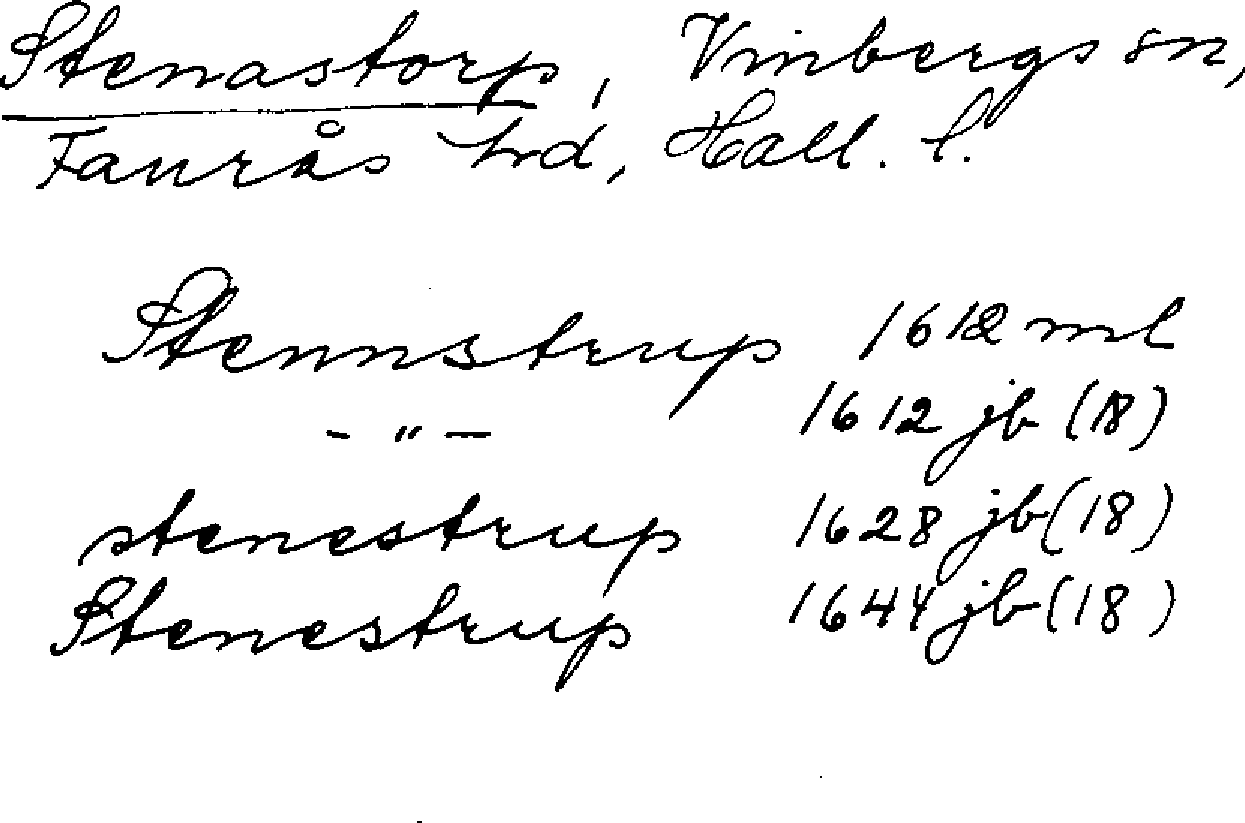 Stenastorp, Vinbergs sn,
Faurås hd, Hall. l.
Stennstrup 1612 ml
- " - 1612 jb (18)
stenestrup 1628 jb (18)
Stenestrup 1644 jb (18)